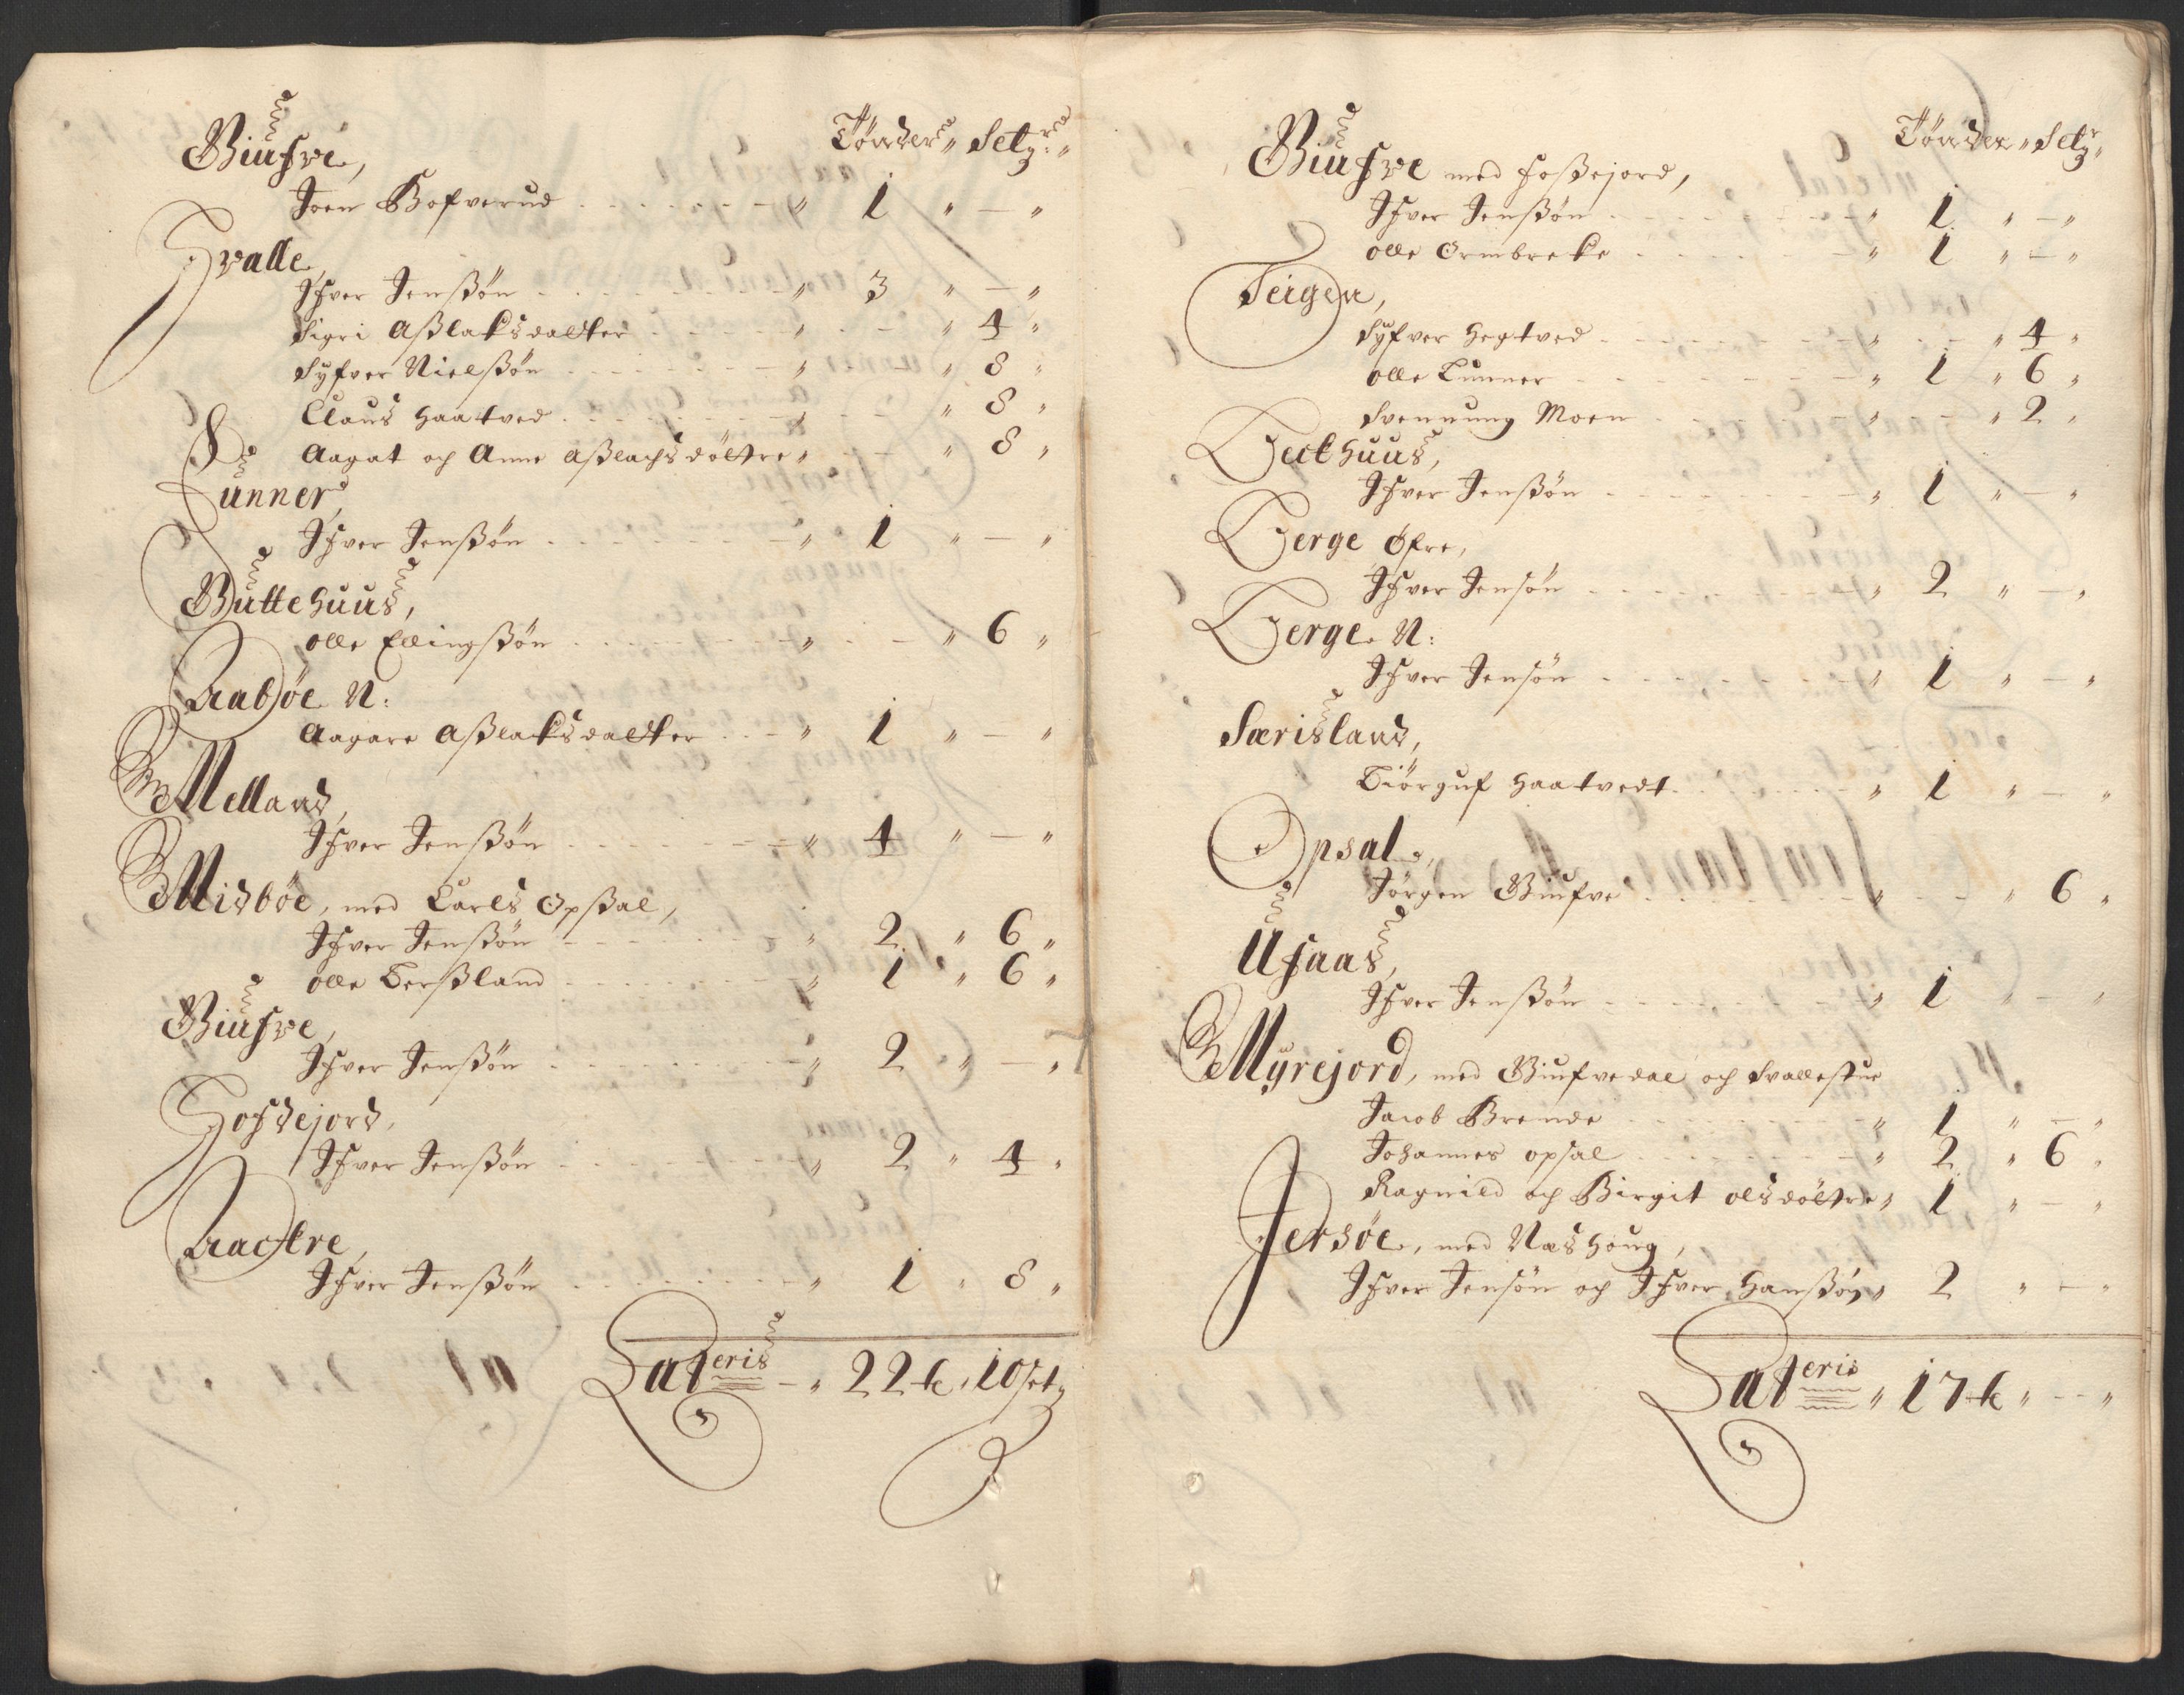 Tönder „ Setg:r „
Biufre,
Joen Bofverud . . . . . . . „ 1 „ — „
Hvalle,
Ifver Jenßøn . . . . . . . „ 3 „ — „
Sigri Aßlaksdaatter . . . . . „ — „ 4 „
Syfver Nielßøn . . . . . . „ — „ 8 „
Claus Haatved . . . . . . . „ — „ 8 „
Aagat och Anne Aßlachsdöttre „ — „ 8 „
Lunner,
Ifver Jenßøn . . . . . . . „ 1 „ — „
Buttehuus,
Olle Ellingßøn . . . . . . . „ — „ 6 „
Raaböe N:
Aagare Aßlaksdaatter . . . „ 1 „ — „
Melland,
Ifver Jenßøn . . . . . . . „ 4 „ — „
Midböe, med Carls Opßal,
Ifver Jenßøn . . . . . . . „ 2 „ 6 „
Olle Berßland . . . . . . . „ 1 „ 6 „
Biufre,
Ifver Jenßøn . . . . . . . „ 2 „ — „
Gofdejord,
Ifver Jenßøn . . . . . . . „ 2 „ 4 „
Raatre,
Ifver Jenßøn . . . . . . . „ 1 „ 8 „
Lateris — „ 22 te „ 10 setg
Tönder „ Setg:r „
Biufre med Foßejord,
Ifver Jenßøn . . . . . . . „ 1 „ — „
Olle Ormbreke . . . . . . „ 1 „ — „
Teigen,
Syfver Hegtved . . . . . . „ — „ 4 „
Olle Lunner . . . . . . . „ 1 „ 6 „
Svennung Moen . . . . . . „ — „ 2 „
Bekhuus,
Ifver Jenßøn . . . . . . . „ 1 „ — „
Berge Öfre,
Ifver Jensøn . . . . . . . „ 2 „ — „
Berge N:
Ifver Jensøn . . . . . . . „ 1 „ — „
Særisland,
Biörguf Haatvedt . . . . . „ 1 „ — „
Opsal,
Jörgen Biufve . . . . . . . „ — „ 6 „
Ufaas,
Ifver Jenßøn . . . . . . . „ 1 „ — „
Myrejord, med Biufvedal och Svallestue
Jacob Brende . . . . . . . „ 1 „ — „
Johannes Opsal . . . . . . „ 2 „ 6 „
Ragnild och Birgit Olsdöttre „ 1 „ — „
Jersöe, med Næshoug,
Ifver Jensøn och Ifver Hanßøn „ 2 „ — „
Lateris „ 17 te „ — „